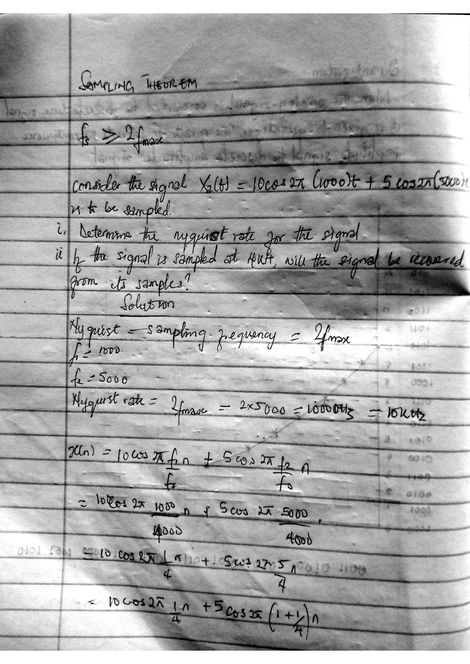 SAMPLING THEOREM
fs ⩾ 2fmax
consider the signal Xa(t) = 10cos2π(1000)t + 5cos2π(5000)t
is to be sampled.
i, Determine the nyquist rate for the signal
ii If the signal is sampled at 4KHz, will the signal be recovered
from its samples?
Solution
Nyquist = sampling frequency = 2fmax
f1 = 1000
f2 = 5000
Nyquist rate = 2fmax = 2x5000 = 10000Hz = 10KHz
x(n) = 10cos 2π f1/fs n + 5cos 2π f2/fs n
= 10cos 2π 1000/4000 n + 5cos 2π 5000/4000
= 10 cos 2π 1/4 n + 5cos 2π 5/4 n
= 10cos 2π 1/4 n + 5cos 2π (1 + 1/4) n